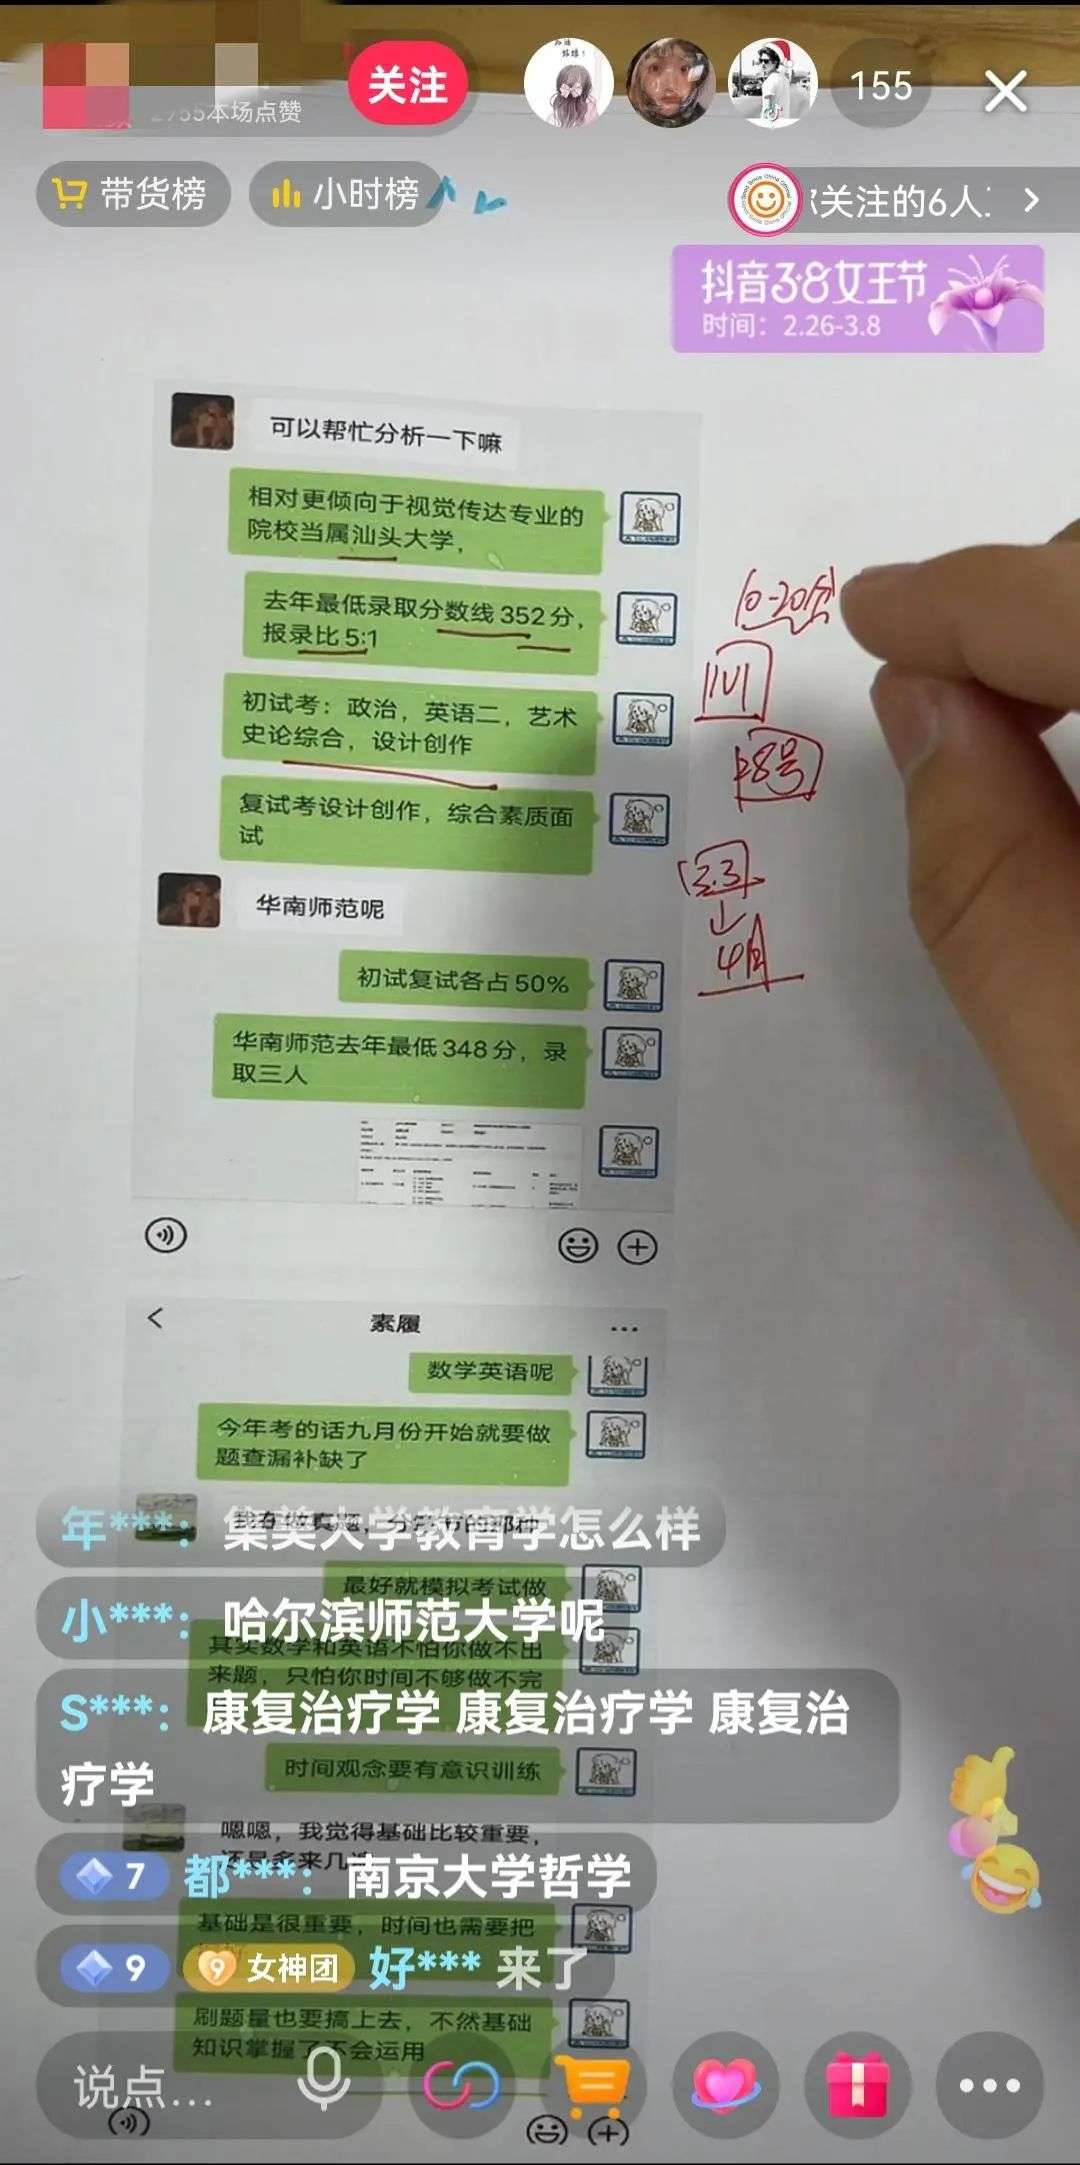 2955本场点赞
关注
155
带货榜
小时榜
关注的6人
抖音3.8女王节
时间：2.26-3.8
可以帮忙分析一下嘛
相对更倾向于视觉传达专业的
院校当属汕头大学，
去年最低录取分数线352分，
报录比5:1
初试考：政治，英语二，艺术
史论综合，设计创作
复试考设计创作，综合素质面
试
10-20分
1V1
38号
2.3
4月
华南师范呢
初试复试各占50%
华南师范去年最低348分，录
取三人
素履
数学英语呢
今年考的话九月份开始就要做
题查漏补缺了
年***： 集美大学教育学怎么样
最好就模拟考试做
小***： 哈尔滨师范大学呢
其实数学和英语不怕你做不出
来题，只怕你时间不够做不完
S***： 康复治疗学 康复治疗学 康复治
疗学
时间观念要有意识训练
嗯嗯，我觉得基础比较重要，
7 都***： 南京大学哲学
基础是很重要，时间也需要把
9 9 女神团 好*** 来了
刷题量也要搞上去，不然基础
知识掌握了不会运用
说点...